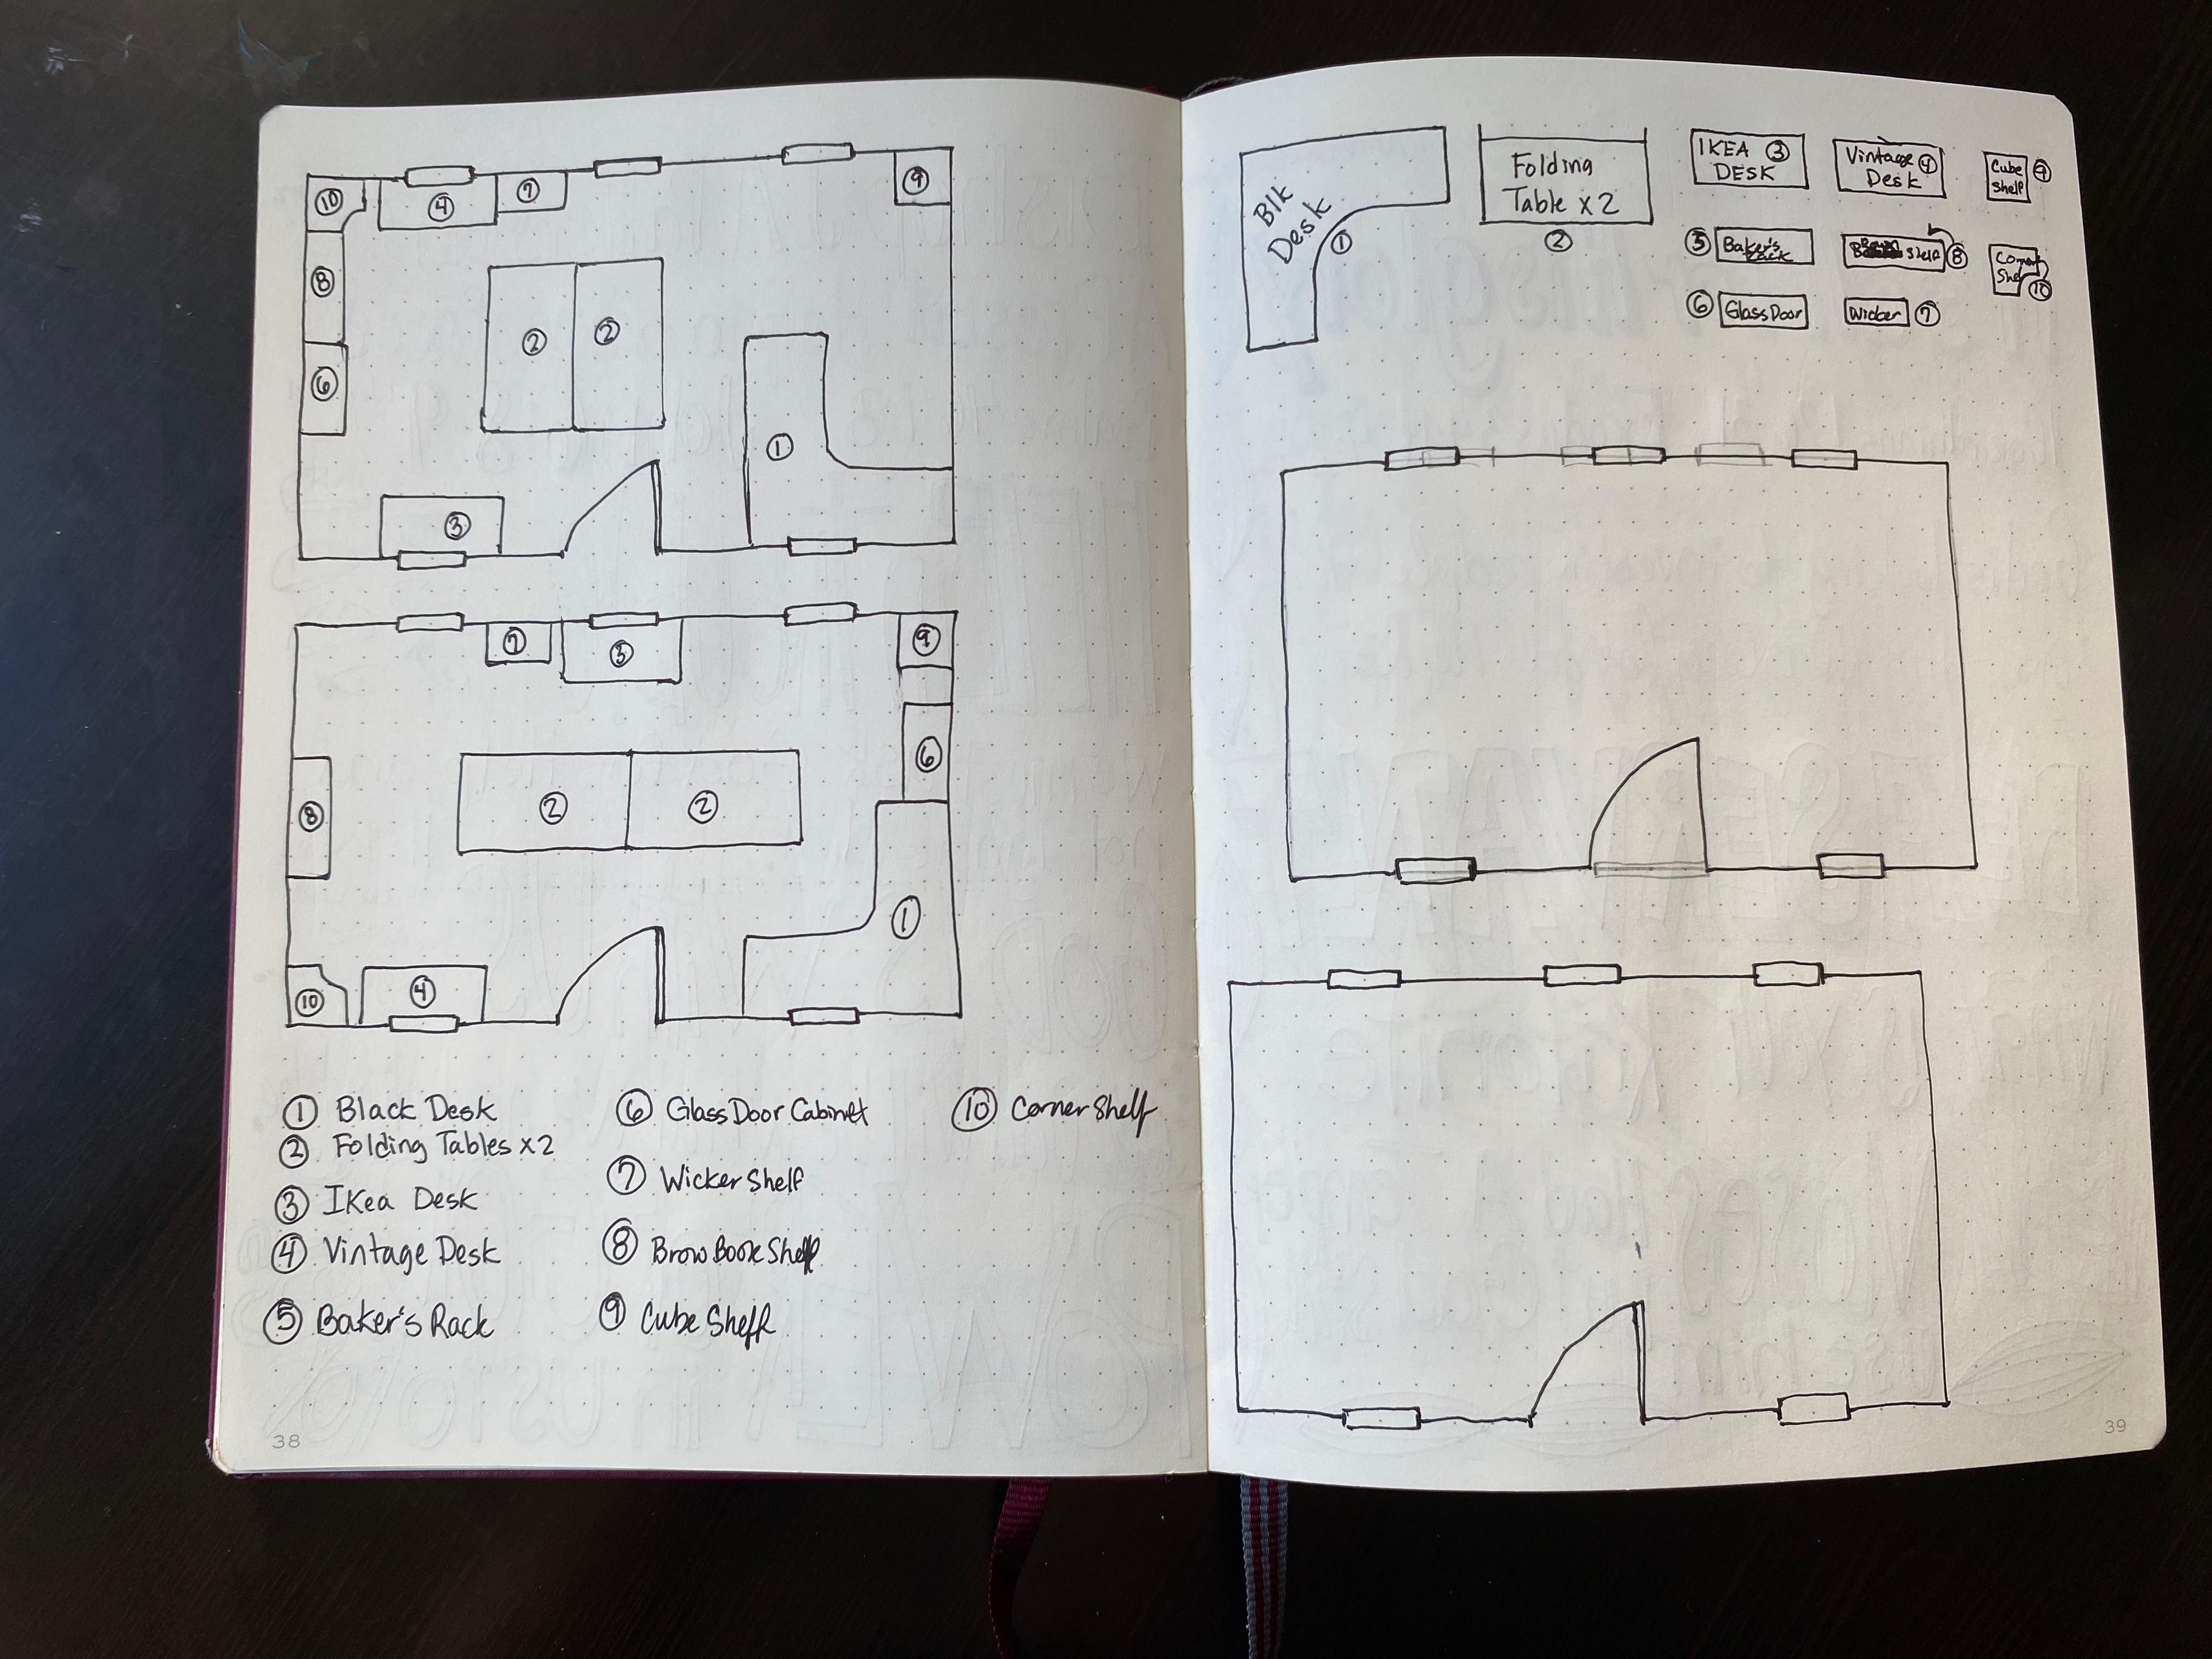 10
4
7
9
8
6
2
2
1
3
7
3
9
6
2
2
8
1
10
4
1 Black Desk
2 Folding Tables x2
3 IKea Desk
4 Vintage Desk
5 Baker's Rack
6 Glass Door Cabinet
7 Wicker Shelf
8 Brow Book Shelf
9 Cube Shelf
10 Corner Shelf
38
Blk
Desk
1
Folding
Table x 2
2
IKEA 3
DESK
Vintage 4
Desk
Cube
Shelf 9
5 Baker's
Rack
Shelf 8
Corner
10
6 Glass Door
Wicker 7
39